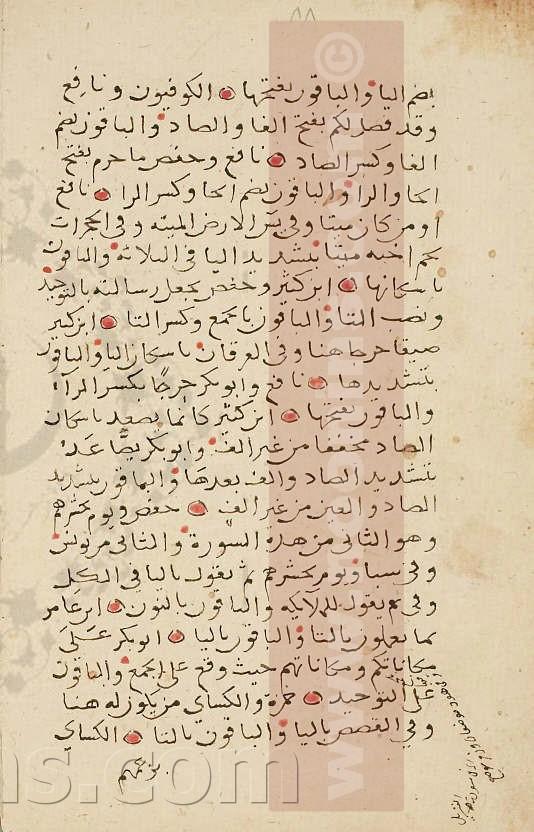 ٨٨
بضم اليا والباقون بفتحها الكوفيون ونافع
وقد فصل لكم بفتح الفا والصاد والباقون بضم
الفا وكسر الصاد نافع وحفص ما حرم بفتح
الحا والرا والباقون بضم الحا وكسر الرا نافع
او من كان ميتا وفي يس الارض الميته وفي الحجرات
لحم اخيه ميتا بتشديد اليا في الثلاثة والباقون
باسكانها ابن كثير وحفص يجعل رسالته بالتوحيد
ونصب التا والباقون بالجمع وكسر التا ابن كثير
ضيقا حرجا هنا وفي الفرقان باسكان اليا والباقون
بتشديدها نافع وابو بكر حرجا بكسر الرآء
والباقون بفتحها ابن كثير كانما يصعد باسكان
الصاد مخففا من غير الف وابو بكر يصّاعد
بتشديد الصاد والف بعدها والباقون بتشديد
الصاد والعين من غير الف حفص ويوم نحشرهم
وهو الثاني من هذه السورة والثاني من يونس
وفي سبا ويوم نحشرهم ثم نقول باليا في الكل
وفي يقول للملايكه والباقون بالنون ابن عامر
عما تعملون بالتا والباقون باليا ابو بكر على
مكاناتكم ومكاناتهم حيث وقع على الجمع والباقون
على التوحيد حمزة والكساي من يكون له هنا
وفي القصص باليا والباقون بالتا الكساي
بزعمهم
www.
ns.com